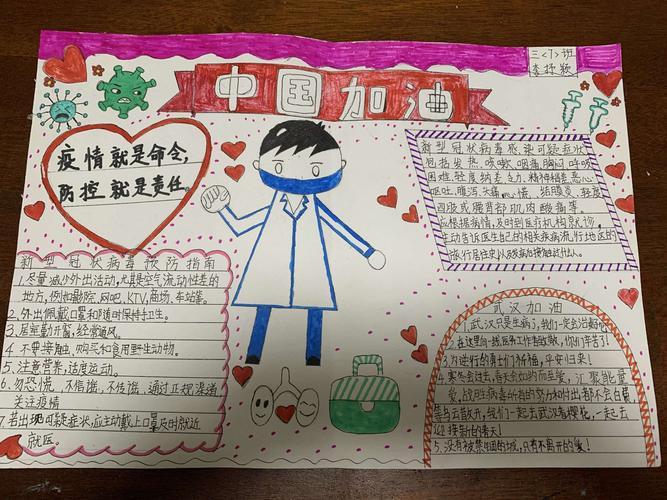 三<7>班
李抒颖
中国加油
疫情就是命令,
防控就是责任。
新型冠状病毒感染可疑症状
包括发热、咳嗽、咽痛、胸闷、呼吸
困难、轻度纳差、乏力、精神稍差、恶心
呕吐、腹泻、头痛、心慌、结膜炎、轻度
四肢或腰背部肌肉酸痛等。
应根据病情,及时到医疗机构就诊,
主动告诉医生自己的相关疾病流行地区的
旅行居住史以及发病后接触过什么人。
新型冠状病毒预防指南
1.尽量减少外出活动,尤其是空气流动性差的
地方,例如影院、网吧、KTV、商场、车站等。
2.外出佩戴口罩和随时保持手卫生。
3.居室勤开窗,经常通风。
4.不要接触、购买和食用野生动物。
5.注意营养,适度运动。
6.勿恐慌,不信谣、不传谣,通过正规渠道
关注疫情
7.若出现可疑症状,应主动戴上口罩及时就近
就医。
武汉加油
1.武汉只是生病了,我们一定会治好
2.在这里向一线医务工作者致敬,你们辛苦了!
3.为逆行的勇士们祈福,平安归来!
4.寒冬会过去,春天会如约而至,汇聚能量
爱,战胜病毒所有的努力和付出都不会白费
等白云散开,我们一起去武汉看樱花,一起去
迎接新的春天!
5.没有被禁用的城,只有不离开的爱!